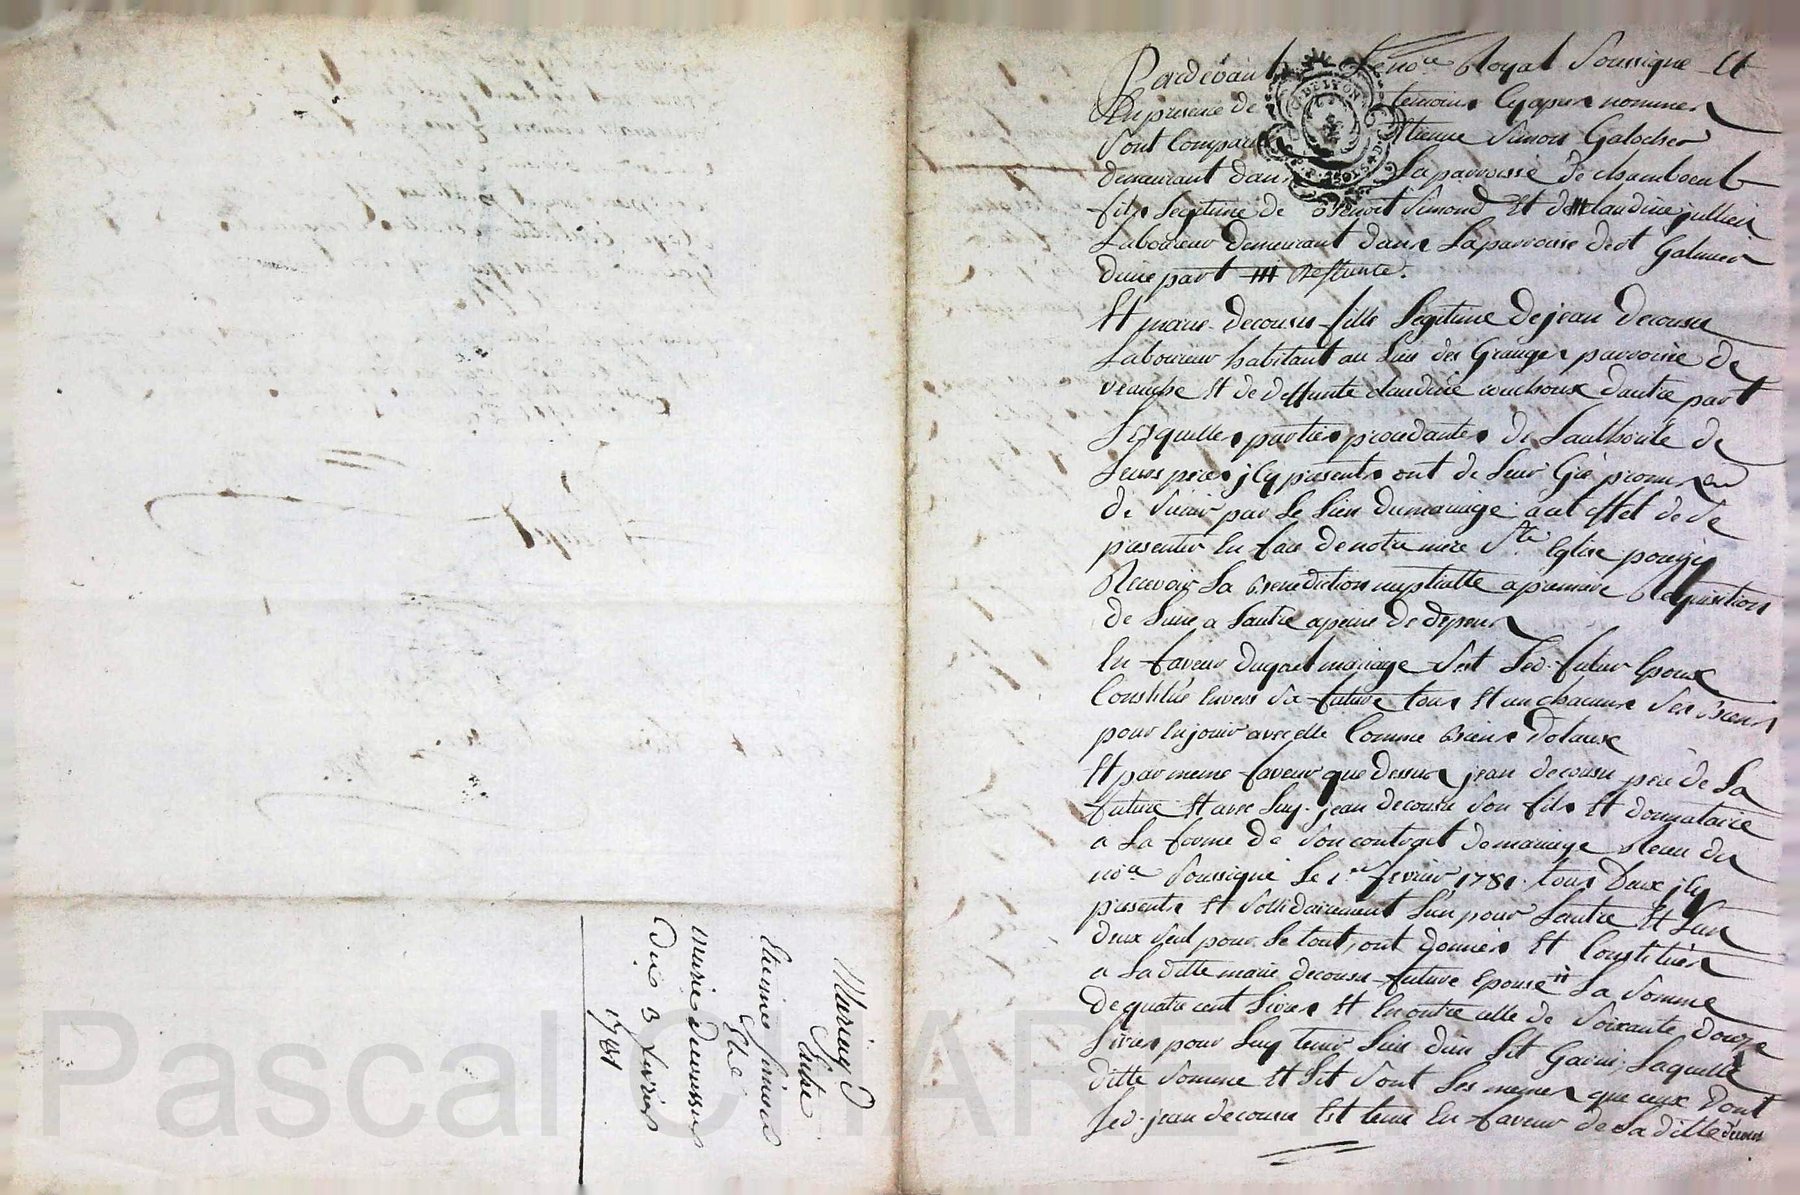 Mariage
Entre
Etienne Simond
Et
marie decoursu
Du 3 fevrier
1781
Pardevant Le no.re Royal Soussigné Et
En presence de temoins Cyapres nommes
Sont Comparu Etienne Simon Galocher
demeurant dans La parroisse de chamboeuf
fils Legitime de Benoit Simond Et de claudine jullien
Laboureur demeurant dans La parroisse de st Galmier
dune part
Et marie decoursu fille Legitime de jean decoursu
Laboureur habitant au Lieu des Granges parroisse de
veauche Et de deffunte claudine couchoux dautre part
Lesquelles parties procedantes de Lauthorité de
Leurs peres jcy presents ont de Leur Gré promis
de Sunir par Le Lien du mariage a cet effet de Se
presenter En face de notre mere S.te Eglise pour y
Recevoir La Benediction nuptialle a premiere Requisition
de Lune a Lautre a peine de depens
En faveur duquel mariage Sest Led. futur Epoux
Constitué Envers Sa future tous Et un chacuns Ses Biens
pour En jouir avec elle Comme Biens Dotaux
Et par meme faveur que dessus jean decoursu pere de La
future Et avec Luy jean decoursu Son fils Et donnataire
a La forme de Son contrat de mariage Recu du
no.re Soussigné Le 1.er fevrier 1781 tous Deux jcy
presents Et Sollidairement Lun pour Lautre Et Lun
deux Seul pour Le tout, ont donnés Et Constitués
a La ditte marie decoursu future Epouse La Somme
De quatre cent Livres Et En outre celle de Soixante Douze
Livres pour Luy tenir Lieu dun Lit Garni; Laquelle
ditte Somme Et Lit Sont Les memes que ceux Dont
Led. jean decoursu Est tenu En faveur de La ditte
Pascal CHAR